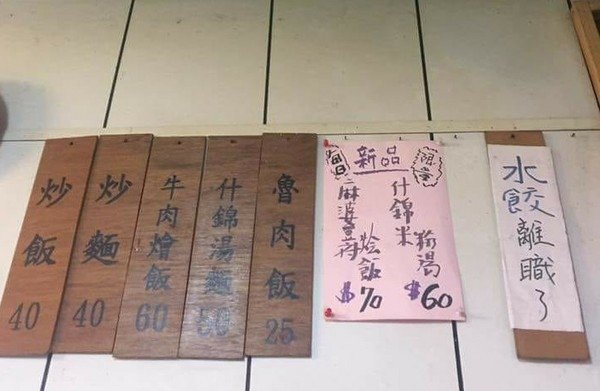 水餃離職了
新品
什錦米粉湯
$60
麻婆
燴飯
$70
魯肉飯
25
什錦湯麵
50
牛肉燴飯
60
炒麵
40
炒飯
40